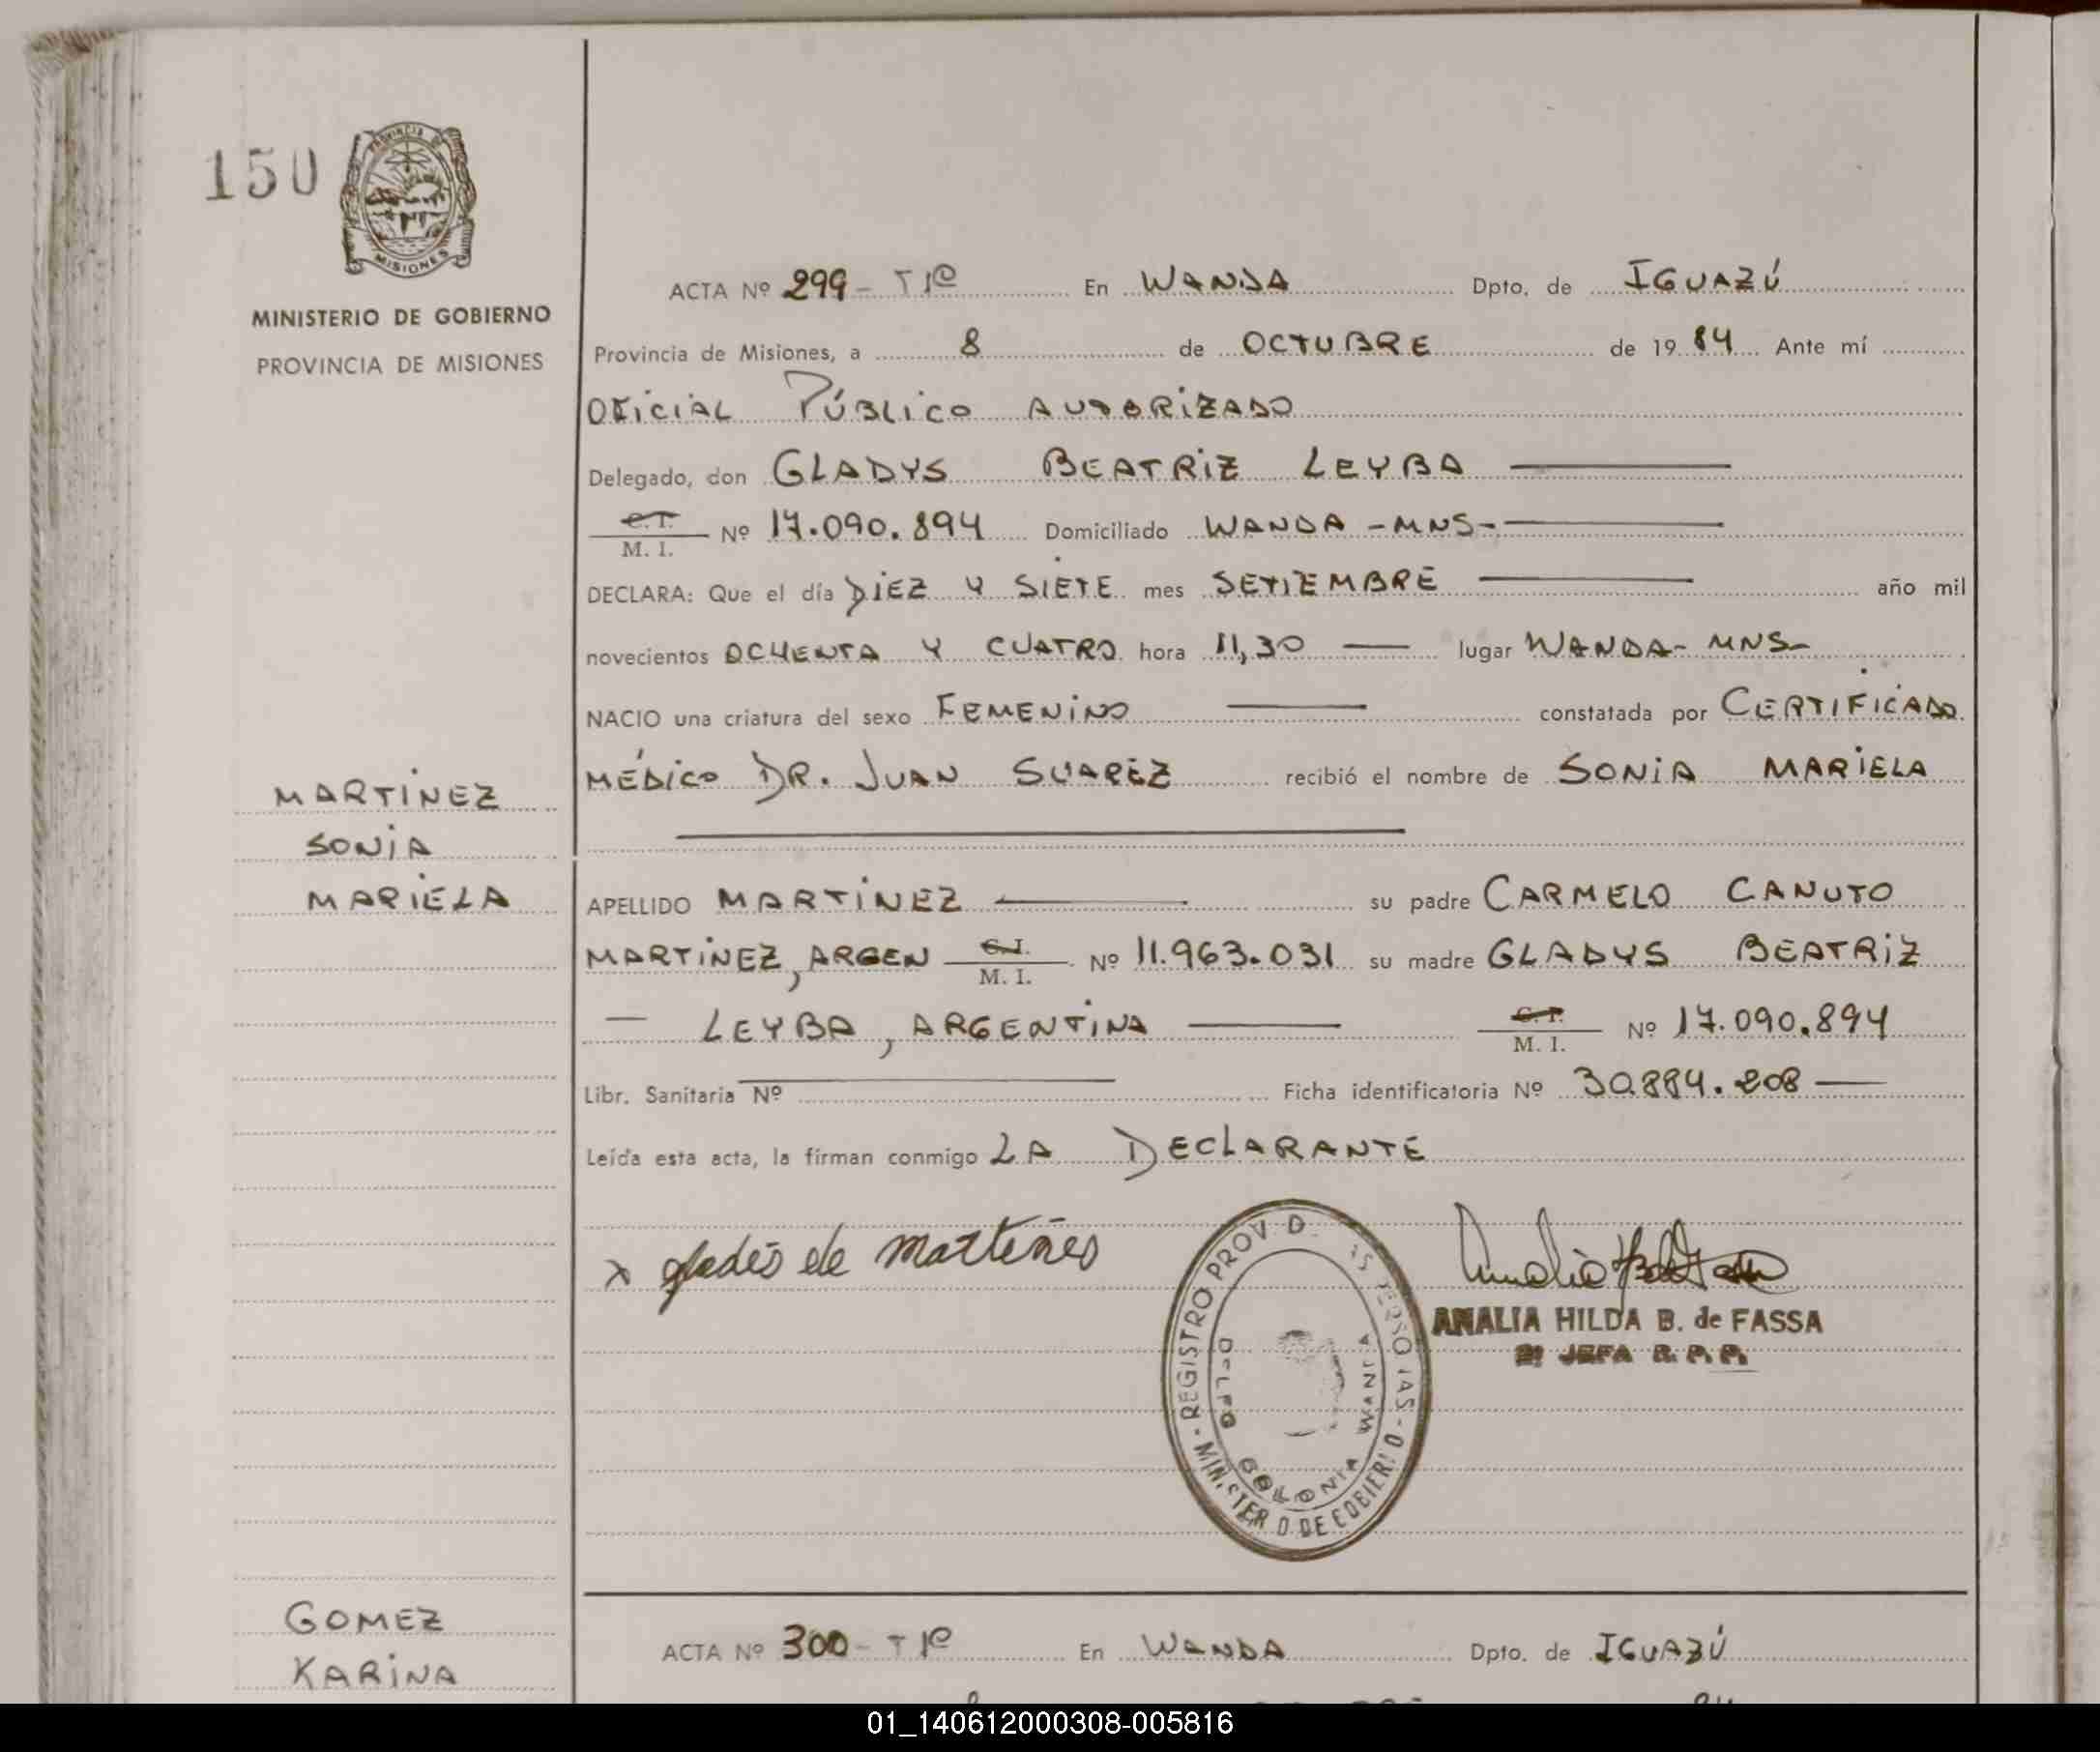 150
PROVINCIA DE
MISIONES
MINISTERIO DE GOBIERNO
PROVINCIA DE MISIONES
ACTA Nº 299 - T 1º En WANDA Dpto. de IGUAZÚ
Provincia de Misiones, a 8 de OCTUBRE de 1984 Ante mí
OFICIAL PÚBLICO AUTORIZADO
Delegado, don GLADYS BEATRIZ LEYBA
C. I. M. I. Nº 17.090.894 Domiciliado WANDA - MNS -
DECLARA: Que el día DIEZ Y SIETE mes SETIEMBRE año mil
novecientos OCHENTA Y CUATRO hora 11,30 lugar WANDA - MNS -
NACIO una criatura del sexo FEMENINO constatada por CERTIFICADO
MÉDICO DR. JUAN SUAREZ recibió el nombre de SONIA MARIELA
MARTINEZ
SONIA
MARIELA
APELLIDO MARTINEZ su padre CARMELO CANUTO
MARTINEZ, ARGEN C. I. M. I. Nº 11.963.031 su madre GLADYS BEATRIZ
— LEYBA, ARGENTINA C. I. M. I. Nº 17.090.894
Libr. Sanitaria Nº Ficha identificatoria Nº 30.884.208
Leída esta acta, la firman conmigo LA DECLARANTE
x gladis de martines
REGISTRO PROV. D. - MINISTERIO DE GOBIERNO
DELEG COLONIA WANDA
ANALIA HILDA B. de FASSA
JEFA R. P. P.
GOMEZ
KARINA
ACTA Nº 300 - T 1º En WANDA Dpto. de IGUAZÚ
01_140612000308-005816